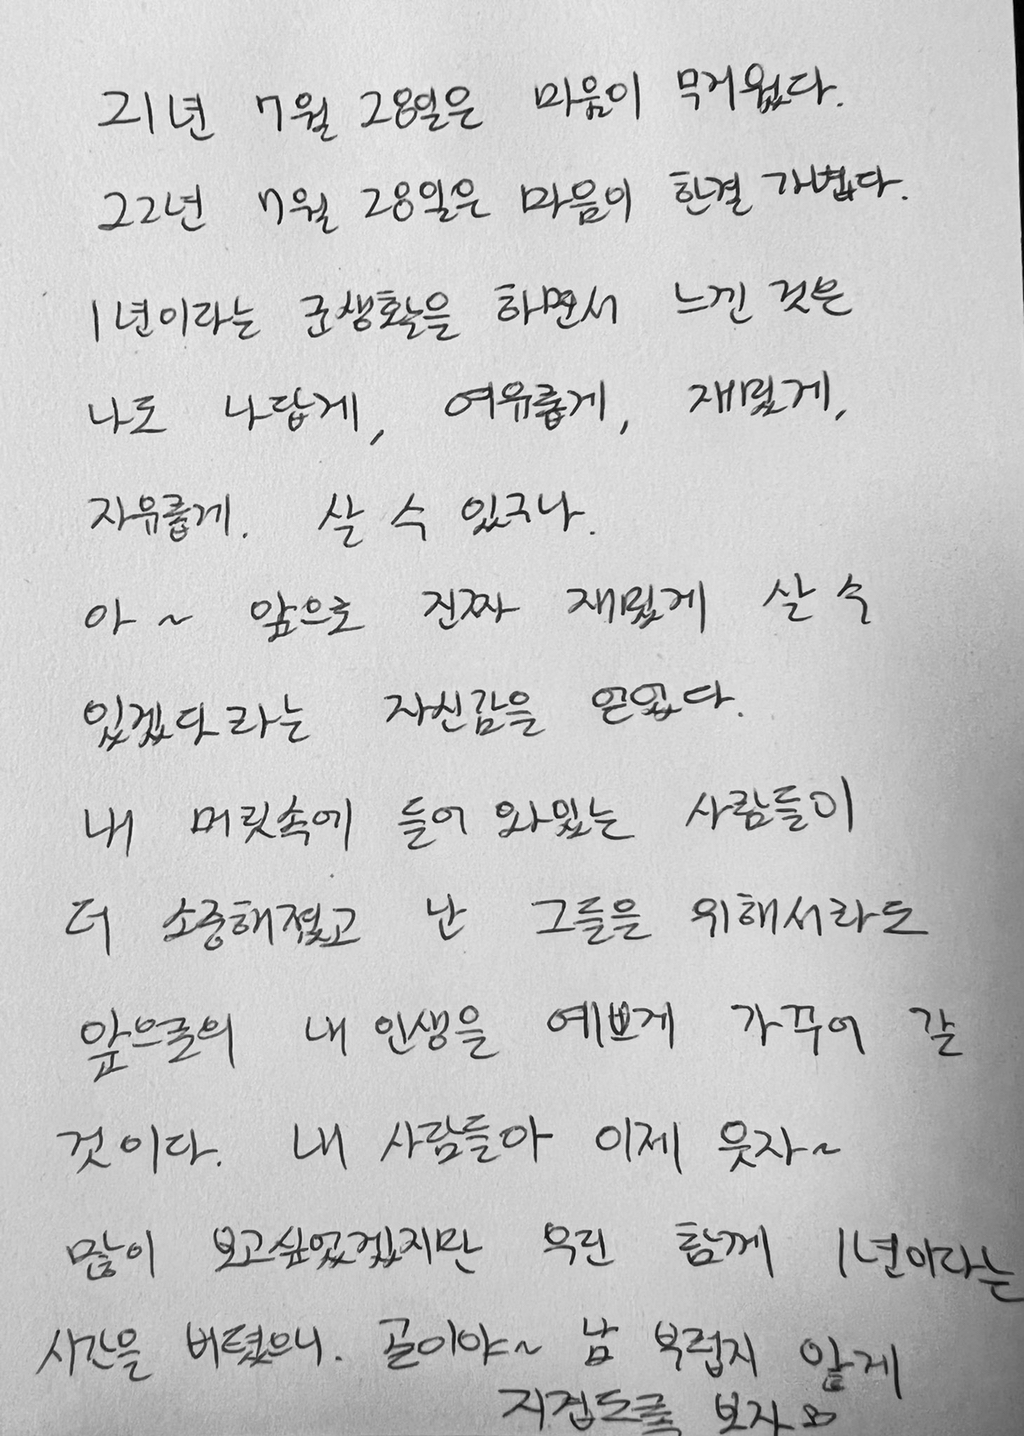 21년 7월 28일은 마음이 무거웠다.
22년 7월 28일은 마음이 한결 가볍다.
1년이라는 군생활을 하면서 느낀 것은
나도 나답게, 여유롭게, 재밌게,
자유롭게. 살 수 있구나.
아~ 앞으로 진짜 재밌게 살 수
있겠다라는 자신감을 얻었다.
내 머릿속에 들어 와있는 사람들이
더 소중해졌고 난 그들을 위해서라도
앞으로의 내 인생을 예쁘게 가꾸어 갈
것이다. 내 사람들아 이제 웃자~
많이 보고싶었겠지만 우린 함께 1년이라는
시간을 버텼으니. 골이야~ 남 부럽지 않게
지겹도록 보자